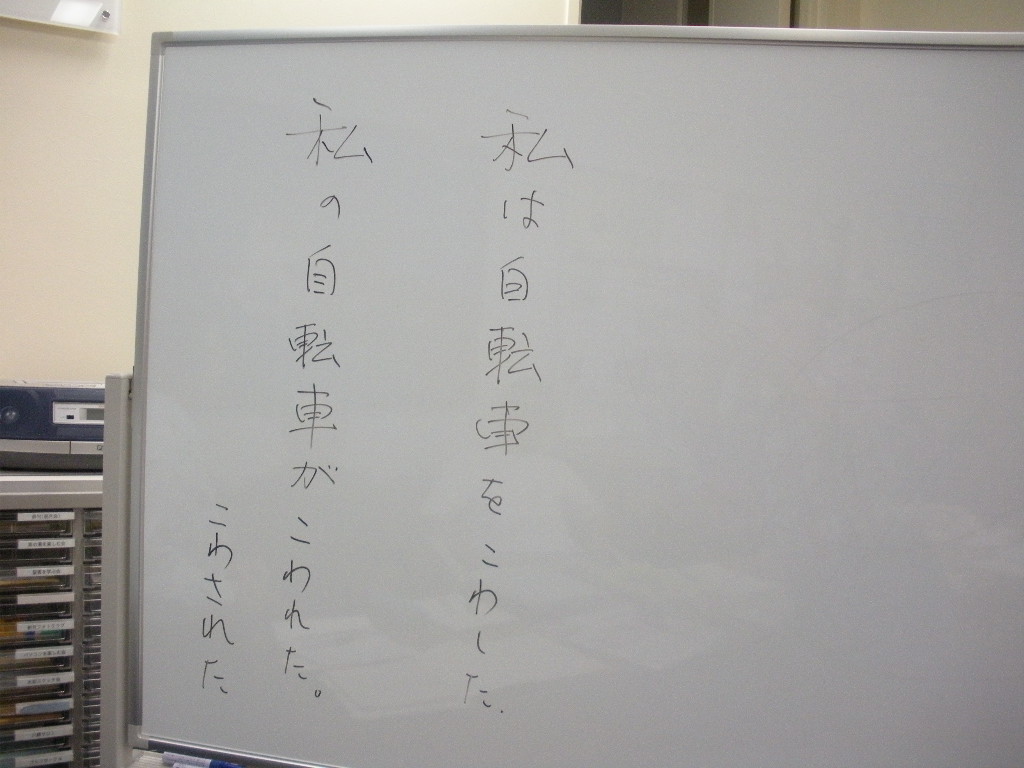 私は自転車をこわした.
私の自転車がこわれた。
こわされた